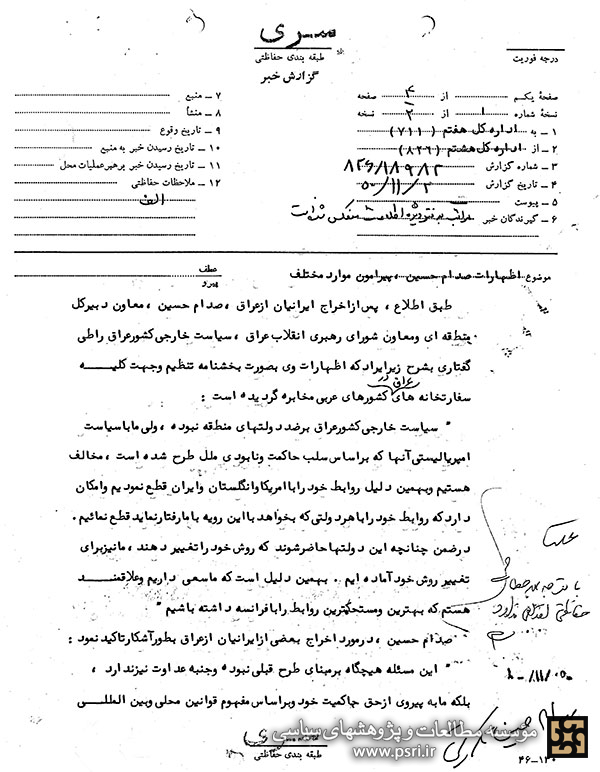 سری
طبقه بندی حفاظتی
گزارش خبر
درجه فوریت
صفحهٔ یکم از ۴ صفحه
نسخهٔ شماره ۱ از ۲ نسخه
۱ ـ به اداره کل هفتم (۷۱۱)
۲ ـ از اداره کل هشتم (۸۲۶)
۳ ـ شماره گزارش ۸۲۶/۱۸۹۸۲
۴ ـ تاریخ گزارش ۵۰/۱۱/۲
۵ ـ پیوست
۶ ـ گیرندگان خبر
۷ ـ منبع
۸ ـ منشأ
۹ ـ تاریخ وقوع
۱۰ ـ تاریخ رسیدن خبر به منبع
۱۱ ـ تاریخ رسیدن خبر برهبر عملیات محل
۱۲ ـ ملاحظات حفاظتی
الف
موضوع اظهارات صدام حسین ، پیرامون موارد مختلف
عطف
پیرو
طبق اطلاع ، پس از اخراج ایرانیان از عراق ، صدام حسین ، معاون دبیرکل
منطقه ای ومعاون شورای رهبری انقلاب عراق ، سیاست خارجی کشور عراق راطی
گفتاری بشرح زیر ایراد که اظهارات وی بصورت بخشنامه تنظیم وجهت کلیه
سفارتخانه های عراق در کشورهای عربی مخابره گردیده است :
" سیاست خارجی کشور عراق برضد دولتهای منطقه نبوده ، ولی ما با سیاست
امپریالیستی آنها که براساس سلب حاکمت ونابودی ملل طرح شده است ، مخالف
هستیم وبهمین دلیل روابط خود را با امریکا وانگلستان وایران قطع نمودیم وامکان
دارد که روابط خود را با هر دولتی که بخواهد با این رویه با ما رفتار نماید قطع نمائیم .
درضمن چنانچه این دولتها حاضر شوند که روش خود را تغییر دهند ، ما نیز برای
تغییر روش خود آماده ایم . بهمین دلیل است که ما سعی داریم وعلاقمند
هستم که بهترین ومستحکمترین روابط را با فرانسه داشته باشیم "
صدام حسین ، درمورد اخراج بعضی از ایرانیان از عراق بطور آشکار تاکید نمود :
" این مسئله هیچگاه برمبنای طرح قبلی نبوده وجنبه عداوت نیز ندارد ،
بلکه ما به پیروی از حق حاکمیت خود وبراساس مفهوم قوانین محلی وبین المللی
سری
طبقه بندی حفاظتی
مؤسسه مطالعات و پژوهشهای سیاسی
www.psri.ir